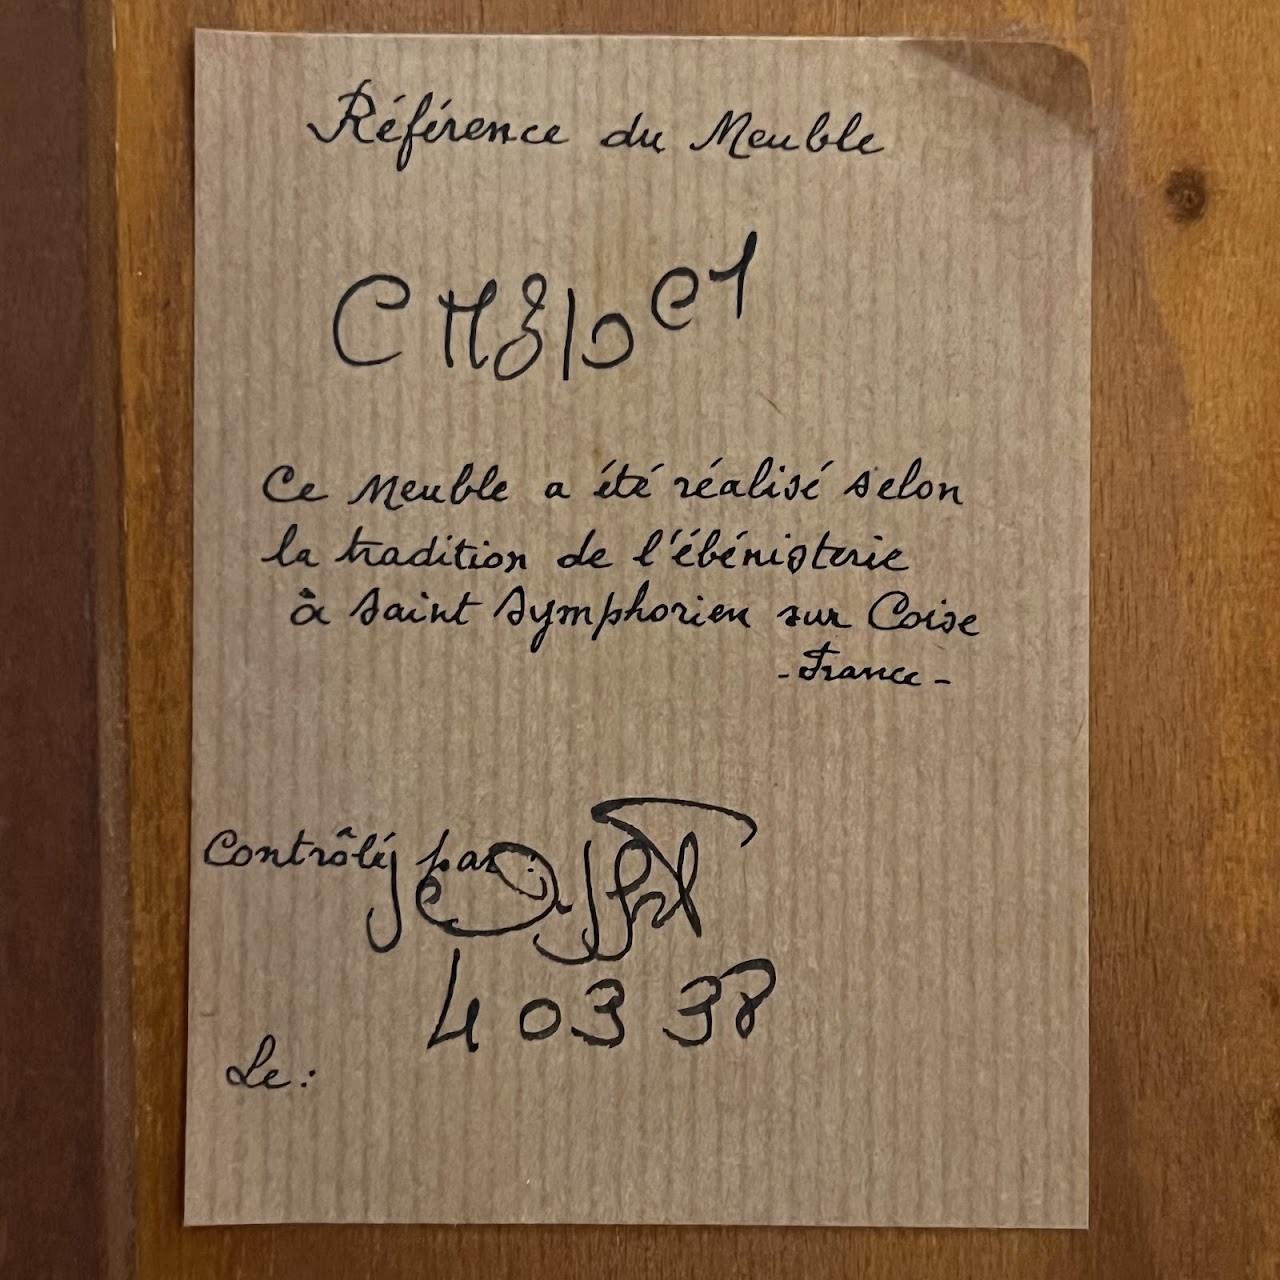 Référence du Meuble
Ce Meuble a été réalisé selon
la tradition de l'ébénisterie
à Saint Symphorien sur Coise
- France -
Contrôlé par :
40338
Le :